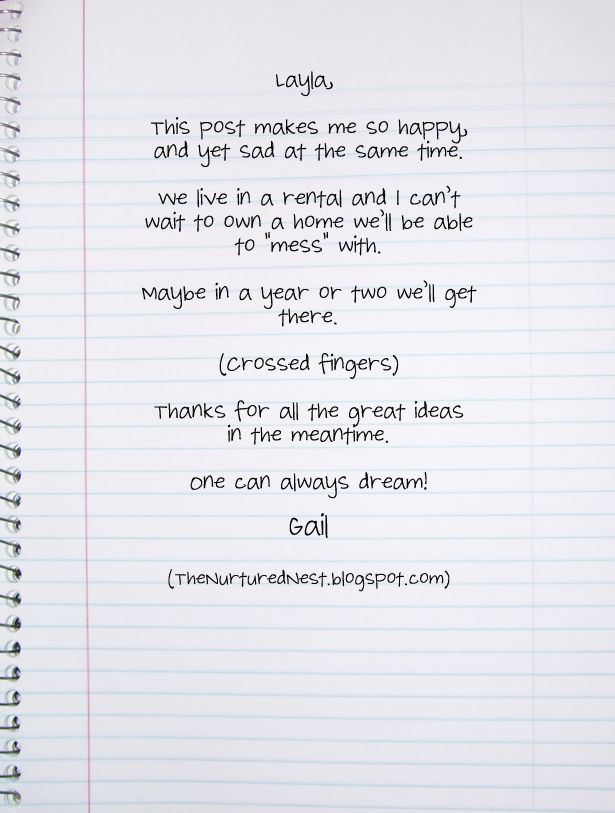 Layla,
This post makes me so happy,
and yet sad at the same time.
We live in a rental and I can't
wait to own a home we'll be able
to "mess" with.
Maybe in a year or two we'll get
there.
(Crossed fingers)
Thanks for all the great ideas
in the meantime.
One can always dream!
Gail
(TheNurturedNest.blogspot.com)